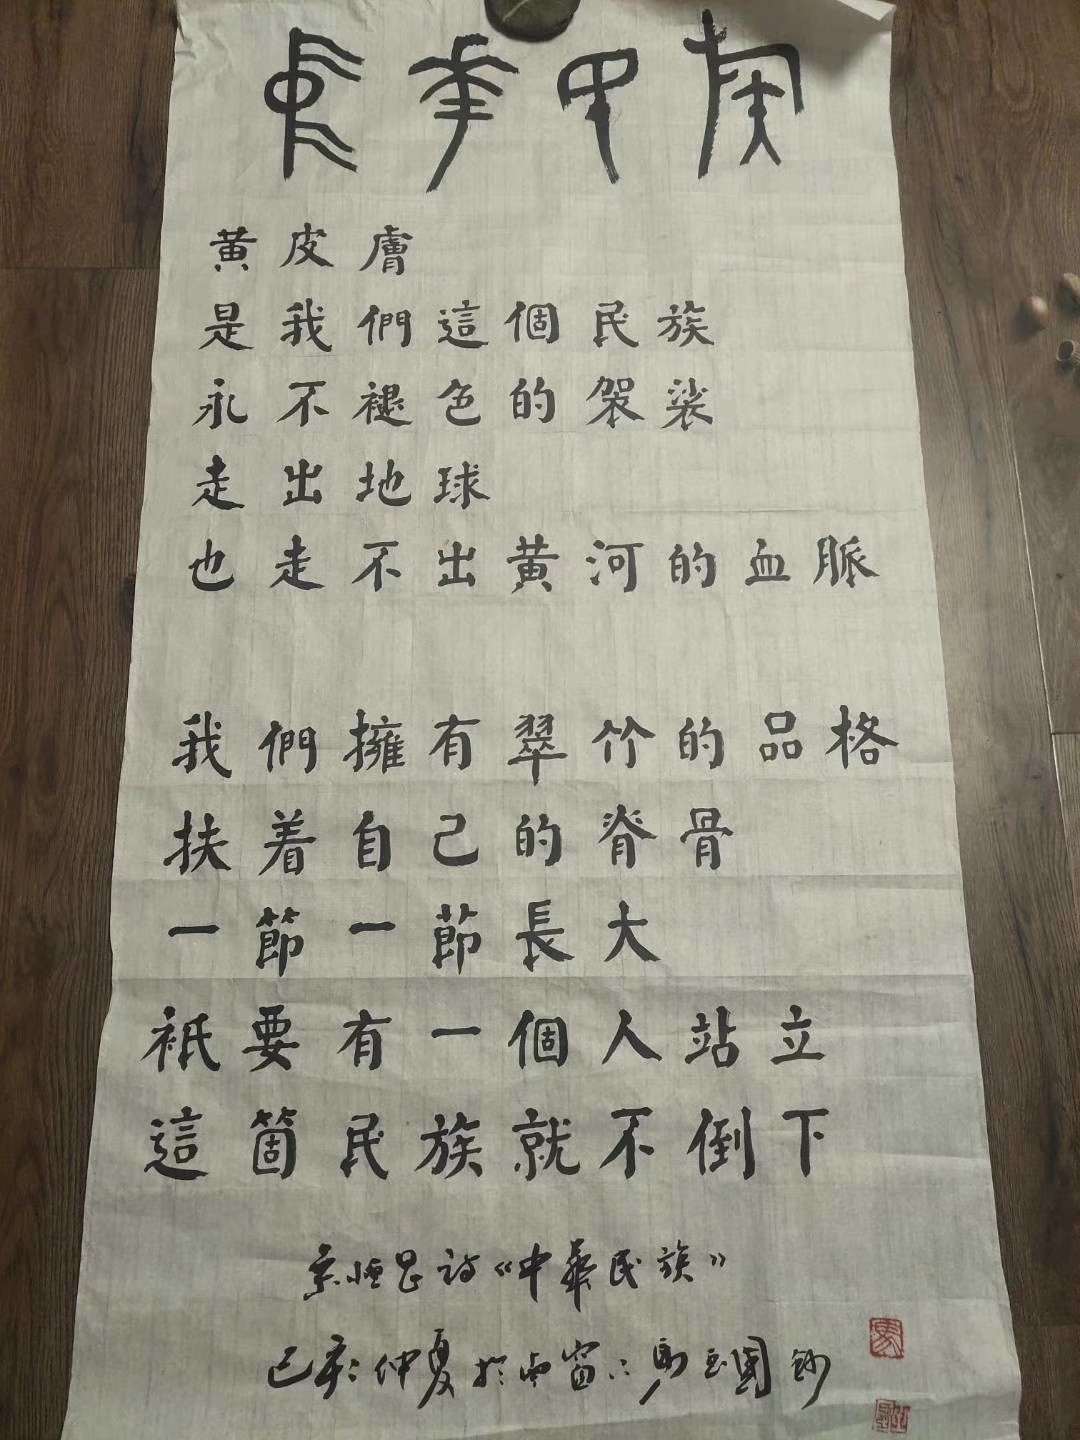 中華民族
黃皮膚
是我們這個民族
永不褪色的袈裟
走出地球
也走不出黃河的血脈
我們擁有翠竹的品格
扶着自己的脊骨
一節一節長大
衹要有一個人站立
這箇民族就不倒下
詩《中華民族》
己亥仲夏於南窗下馬玉國鈔